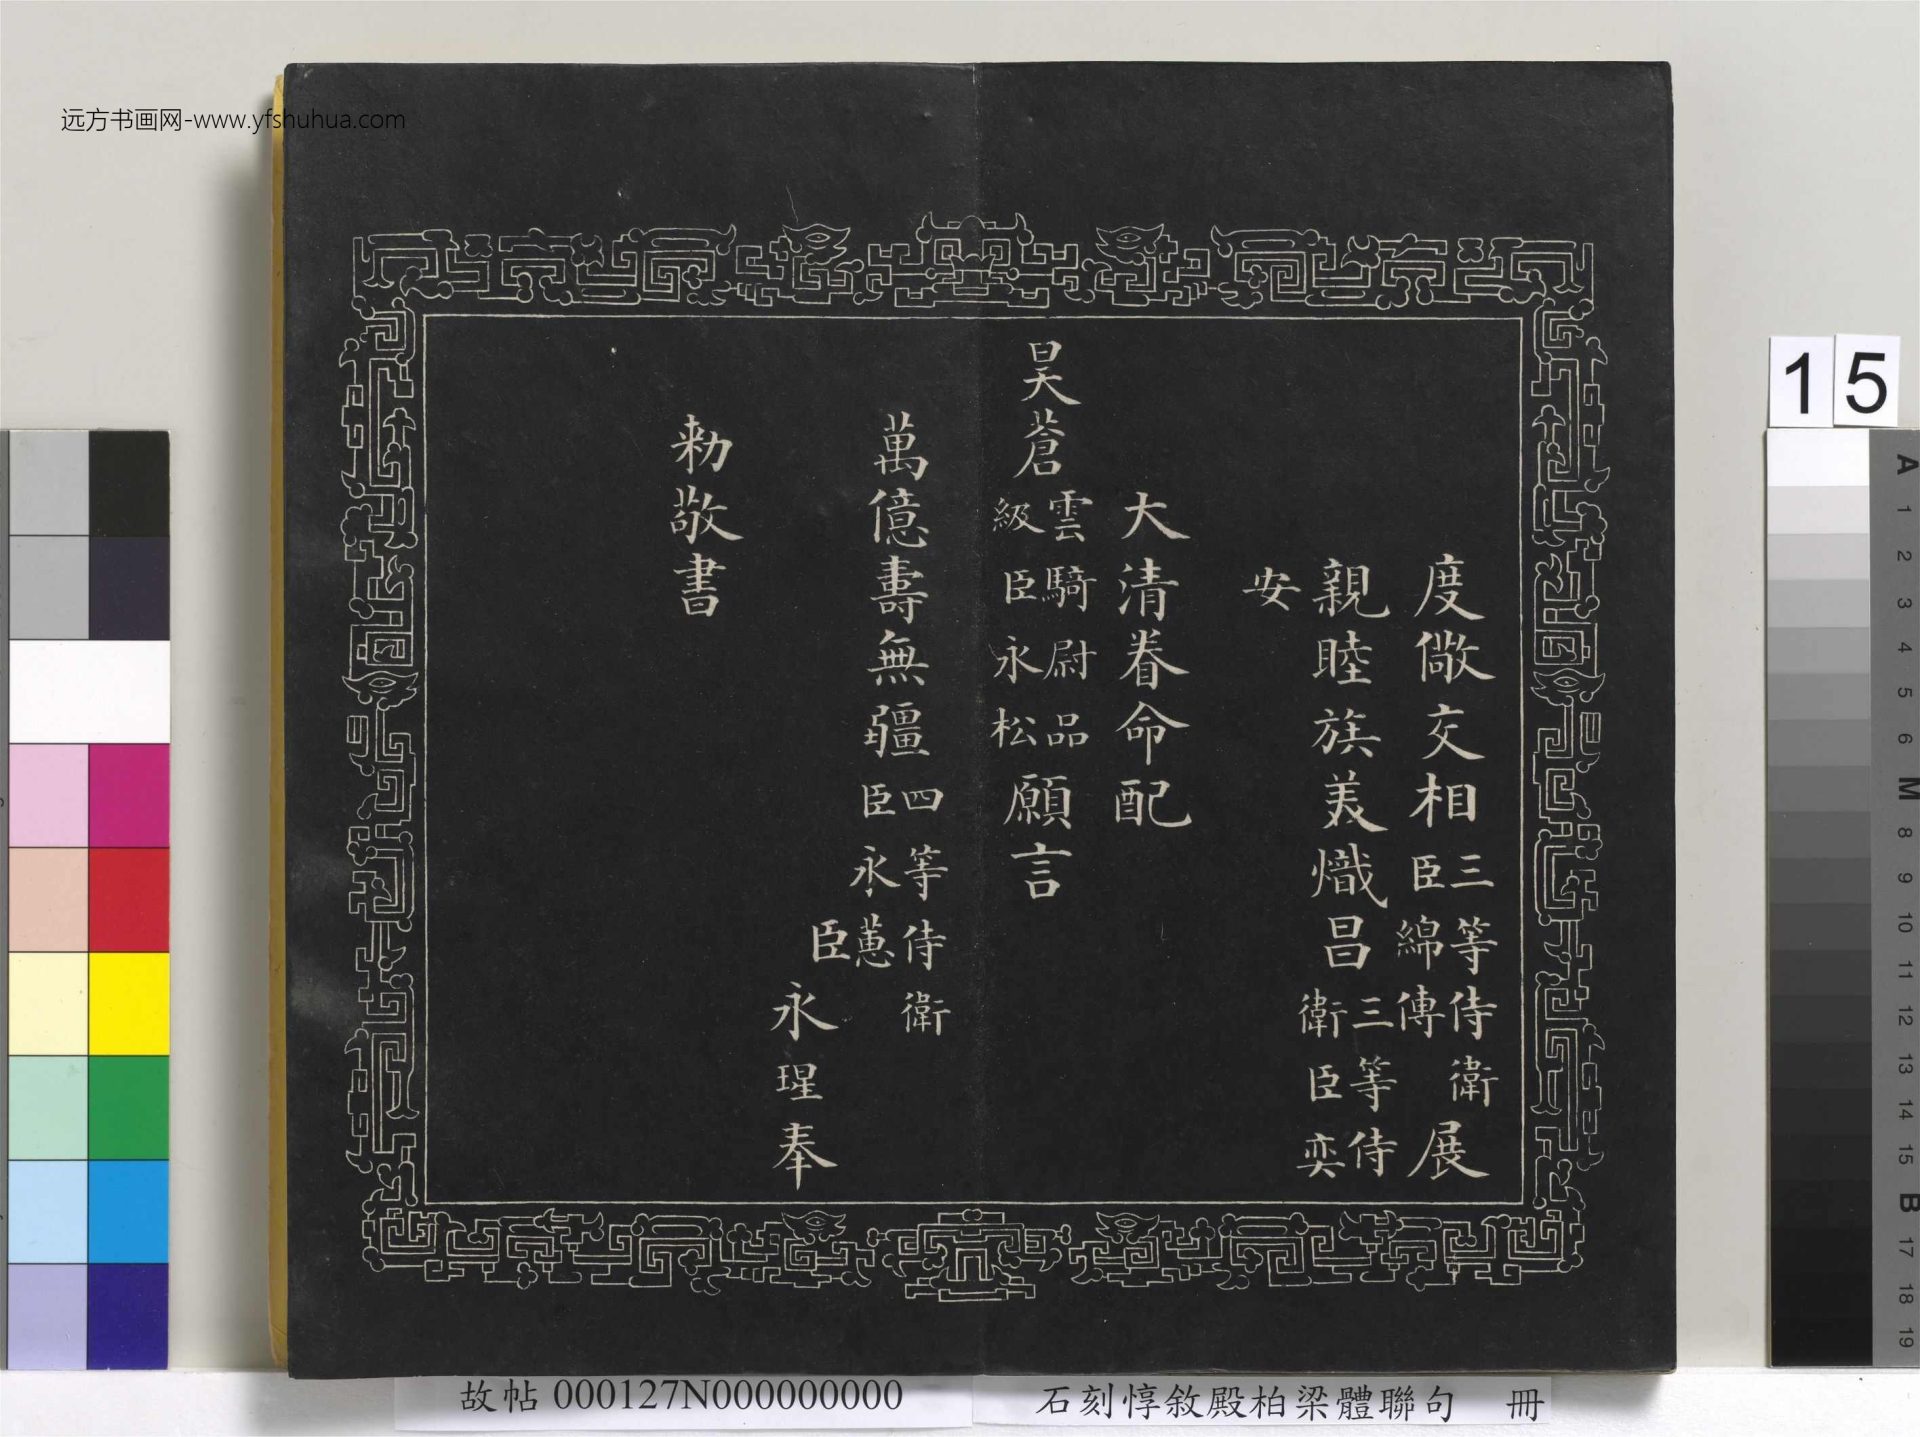 远方书画网-www.yfshuhua.com
度儆交相三等侍衛臣綿傳展
親睦族美熾昌三等侍衛臣奕
安
大清眷命配
昊蒼雲騎尉品級臣永松願言
萬億壽無疆四等侍衛臣永蕙
臣永瑆奉
勅敬書
15
A
1
2
3
4
5
6
M
8
9
10
11
12
13
14
15
B
17
18
19
故帖 000127N000000000
石刻惇敘殿柏梁體聯句 冊